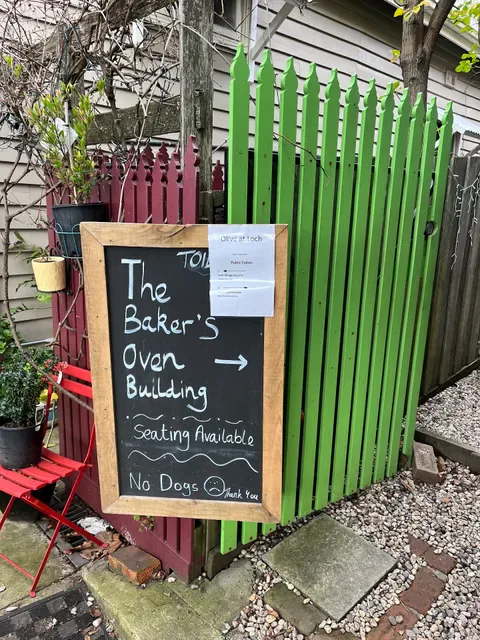 Olive at Loch
Public Toilets
TOIL
The
Baker's
Oven →
Building
Seating Available
No Dogs ☹ Thank You